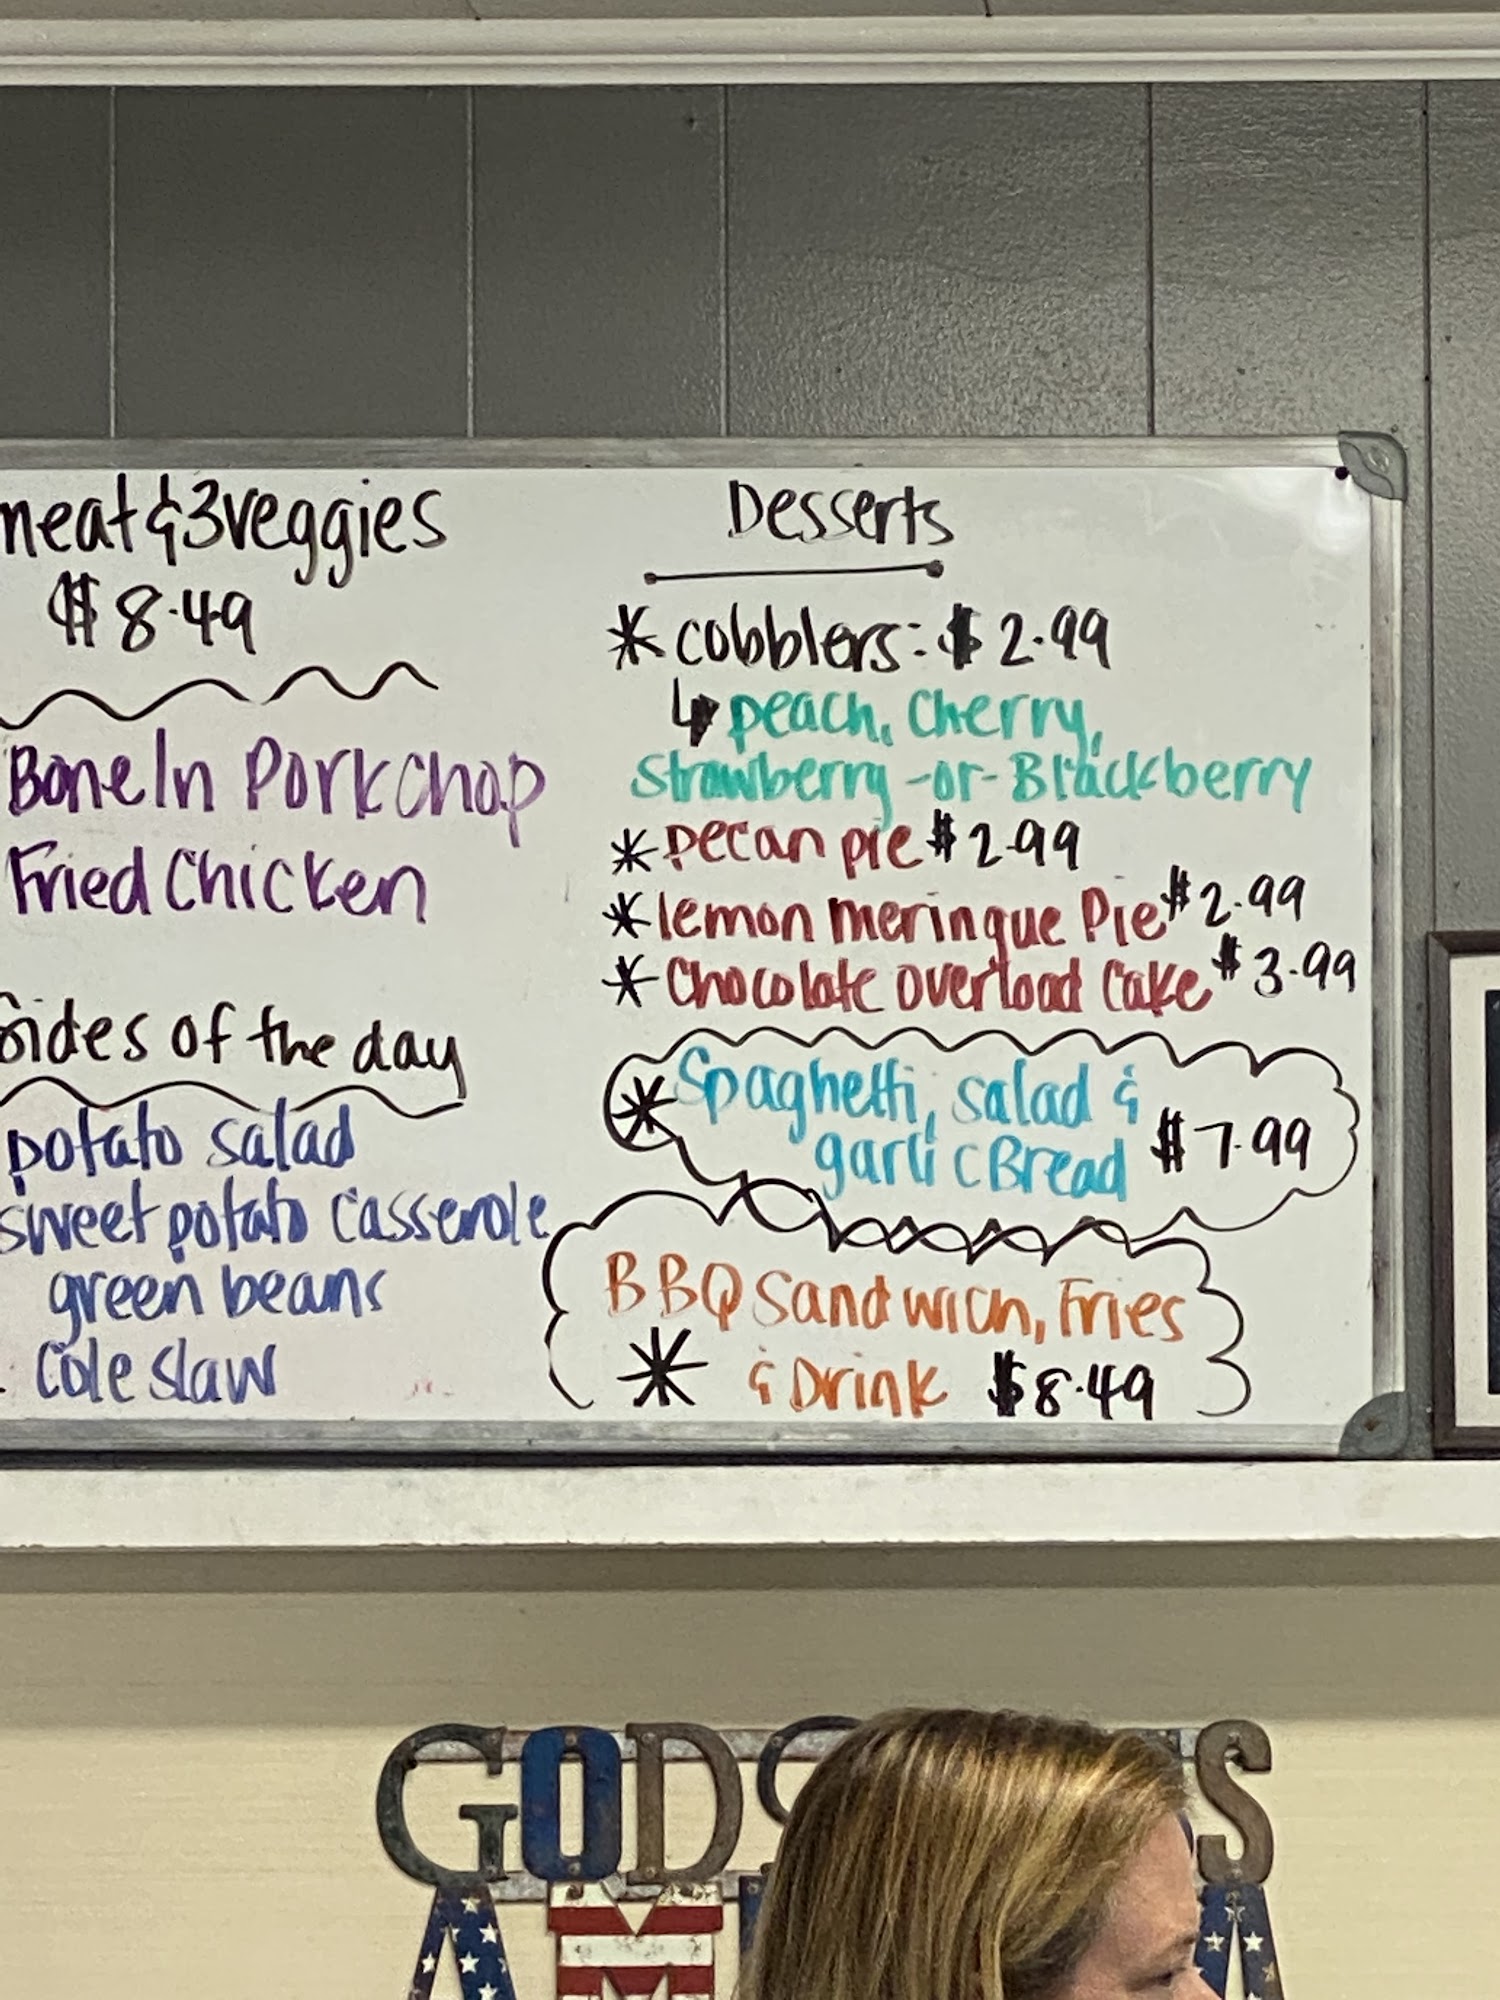 meat & 3 veggies
$8.49
Bone In Pork Chop
Fried Chicken
Sides of the day
potato salad
sweet potato casserole
green beans
Cole slaw
Desserts
* cobblers: $2.99
↳ peach, cherry,
Strawberry -or- Blackberry
* pecan pie $2.99
* lemon meringue Pie $2.99
* Chocolate overload Cake $3.99
* Spaghetti, salad &
garlic Bread $7.99
BBQ Sandwich, Fries
* & Drink $8.49
GOD S
AM A